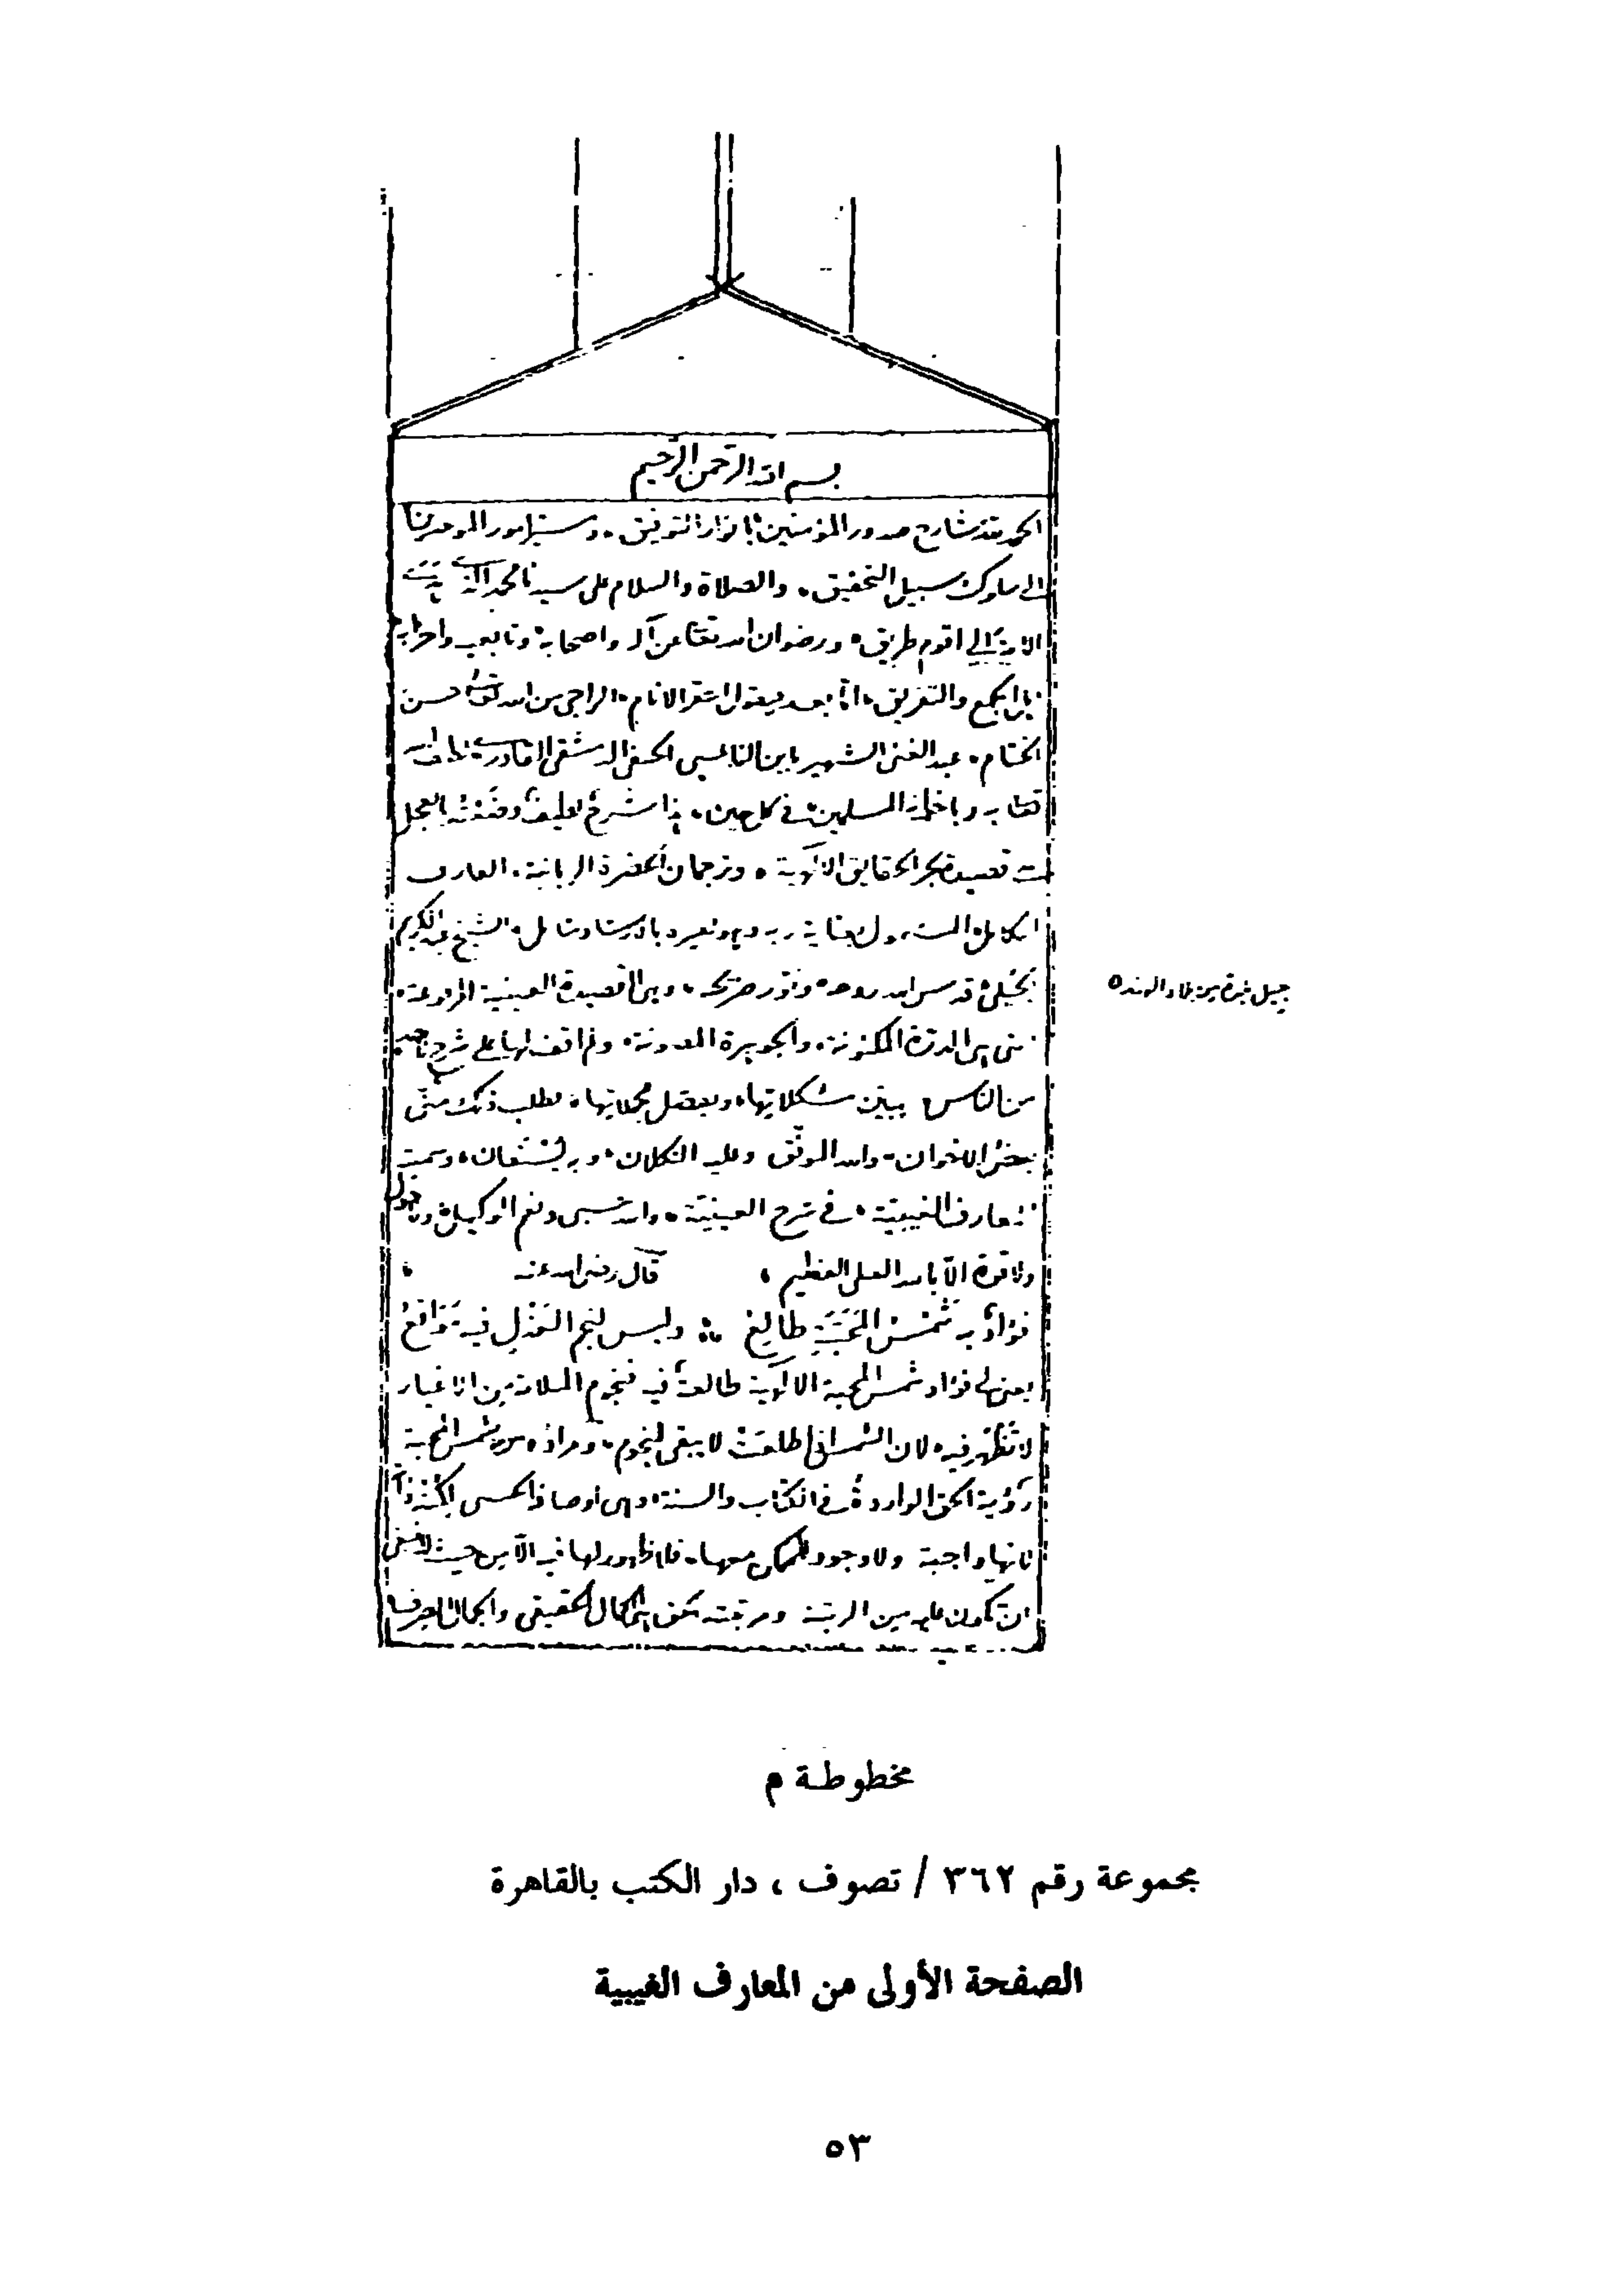 بسم الله الرحمن الرحيم
الحمد لله شارح صدور المؤمنين بانوار التوفيق ٠ وميسر امور الموحدين
الى سلوك سبيل التحقيق ٠ والصلاة والسلام على سيدنا محمد الذى
الامة الى اقوم طريق ٠ ورضوان الله تعا عن آله واصحابه وتابعيه واحزابه
الجمع والتفريق ٠ امّا بعد فيقول احقر الانام ٠ الراجى من الله تعالى حسن
الختام ٠ عبد الغنى الشهير بابن النابلسى الحنفى الدمشقى القادرى
به وباخوانه المسلمين ٠ فى كل حين ٠ هذا شرح لطيف وضعته بالعجل
قصيدة بحر الحقايق الالهية ٠ وترجمان الحضرة الربانية ٠ العارف
الكامل ٠ الشيخ عبد الكريم
الجيلى قدس الله روحه ٠ ونوّر ضريحه ٠ وهى القصيدة العينية
جيل من بلاد الهند ٥
هى الدرّة المكنونة ٠ والجوهرة المصونة ٠ ولم اقف لها على شرح لاحد
من الناس يبيّن مشكلاتها ٠ ويفصل مجملاتها ٠ فطلب ذلك منّى
بعض الاخوان ٠ والله الموفّق وعليه التكلان ٠ وبه المستعان ٠ وسميته
المعارف الغيبيّة ٠ فى شرح العينيّة ٠ والله حسبى ونعم الوكيل ٠ ولا حول
ولا قوة الّا بالله العلى العظيم ٠ قال رضى الله عنه ٠
فؤاد به شمس المحبّة طالع ∴ وليس لنجم العذل فيه مواقع
يعنى لى فؤاد شمس المحبة الالهية طالعة فيه فنجوم الملامة من الاغيار
لا تظهر فيه ٠ لان الشمس اذا طلعت لا يبقى نجوم ٠ ومراده من شمس المحبة
رؤية الحق الواردة فى الكتاب والسنة ٠ وهى اوصافه الحسنى
لانها واجبة ولا وجود للممكن معها ٠ فلا ظهور لها فيه الّا من حيث
ان تكون الحقيقى والجمال الصرف
مخطوطة م
مجموعة رقم ٣٦٢ / تصوف ، دار الكتب بالقاهرة
الصفحة الأولى من المعارف الغيبية
٥٣